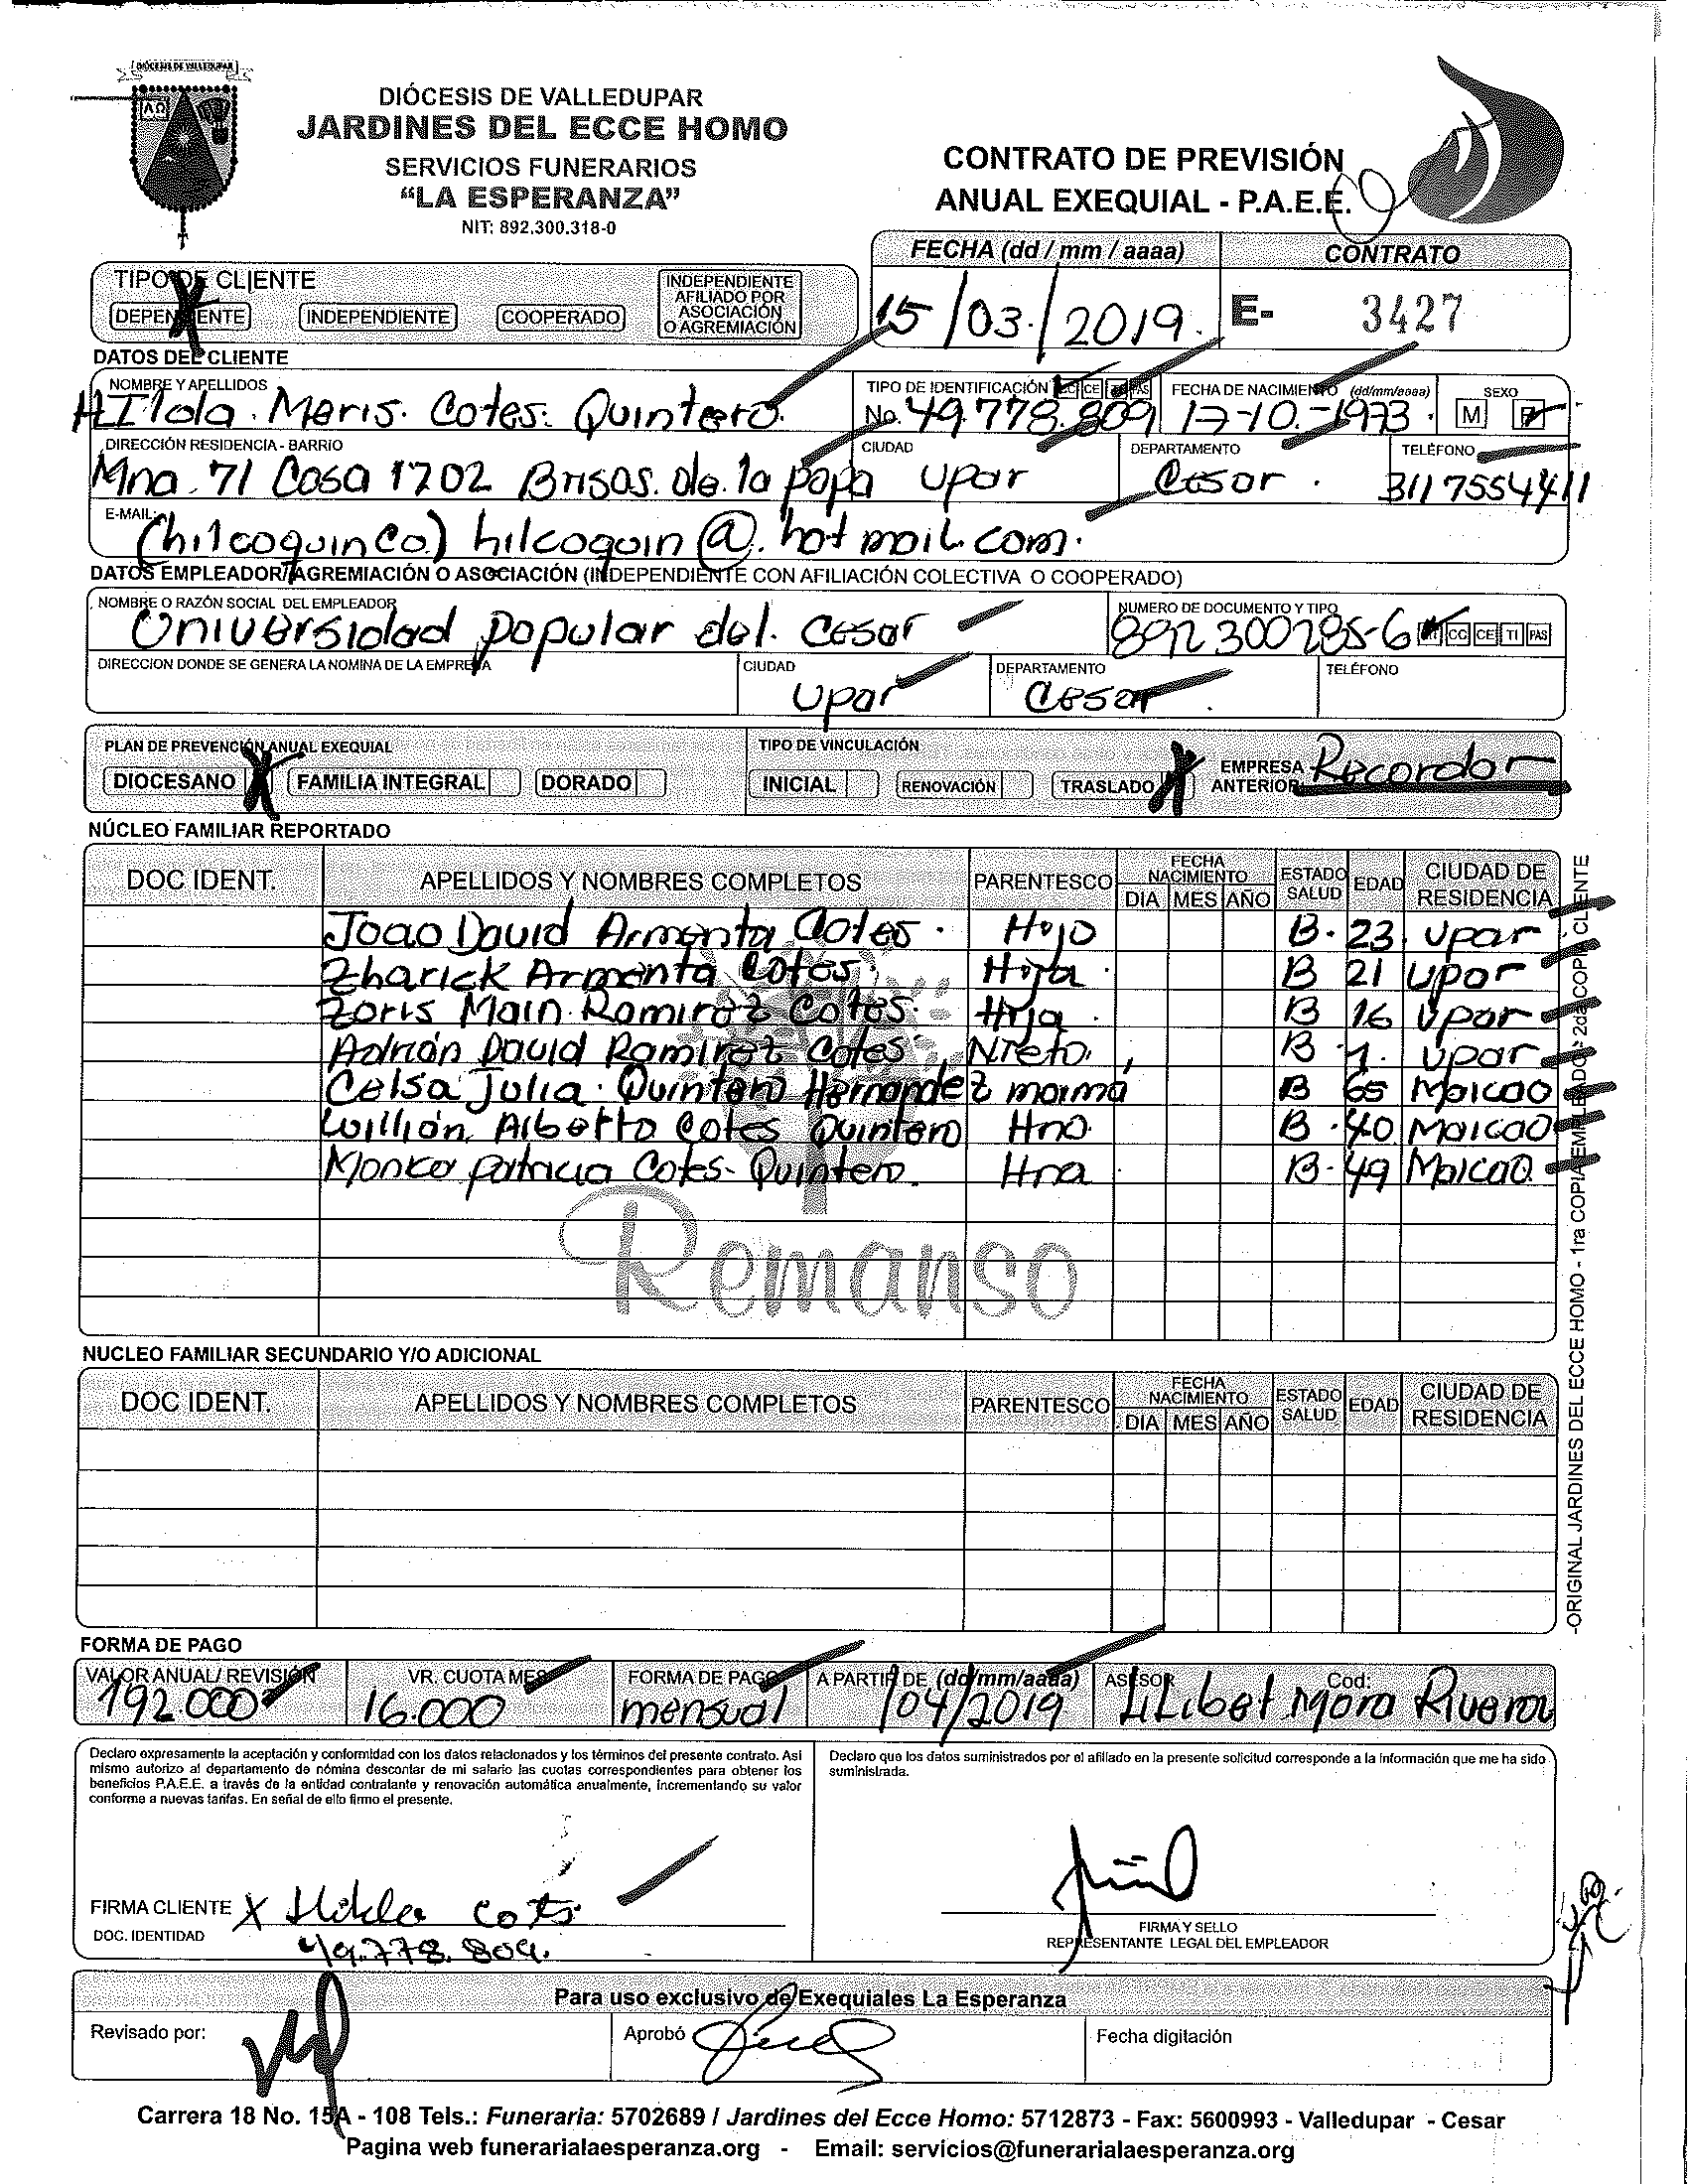 DIÓCESIS DE VALLEDUPAR
DIÓCESIS DE VALLEDUPAR
JARDINES DEL ECCE HOMO
SERVICIOS FUNERARIOS
“LA ESPERANZA”
NIT: 892.300.318-0
CONTRATO DE PREVISIÓN
ANUAL EXEQUIAL - P.A.E.E.
FECHA (dd / mm / aaaa) CONTRATO
15/03/2019. E- 3427
TIPO DE CLIENTE
DEPENDIENTE INDEPENDIENTE COOPERADO INDEPENDIENTE AFILIADO POR ASOCIACIÓN O AGREMIACIÓN
DATOS DEL CLIENTE
NOMBRE Y APELLIDOS TIPO DE IDENTIFICACIÓN CC CE TI PAS FECHA DE NACIMIENTO (dd/mm/aaaa) SEXO
HIlda. Maris. Cotes. Quintero. No. 49.778.809 17-10.-1973. M F
DIRECCIÓN RESIDENCIA - BARRIO CIUDAD DEPARTAMENTO TELÉFONO
Mna. 71 Casa 1702 Brisas. de. la popa Upar Cesar. 3117554411
E-MAIL:
(hilcoquinco) hilcoquin@.hotmail.com.
DATOS EMPLEADOR/AGREMIACIÓN O ASOCIACIÓN (INDEPENDIENTE CON AFILIACIÓN COLECTIVA O COOPERADO)
NOMBRE O RAZÓN SOCIAL DEL EMPLEADOR NUMERO DE DOCUMENTO Y TIPO
Universidad popular del. Cesar 892300285-6 NIT CC CE TI PAS
DIRECCION DONDE SE GENERA LA NOMINA DE LA EMPRESA CIUDAD DEPARTAMENTO TELÉFONO
Upar Cesar.
PLAN DE PREVENCIÓN ANUAL EXEQUIAL TIPO DE VINCULACIÓN
DIOCESANO X FAMILIA INTEGRAL DORADO INICIAL RENOVACIÓN TRASLADO X EMPRESA ANTERIOR: Recordar
NÚCLEO FAMILIAR REPORTADO
DOC IDENT. APELLIDOS Y NOMBRES COMPLETOS PARENTESCO FECHA NACIMIENTO DIA MES AÑO ESTADO SALUD EDAD CIUDAD DE RESIDENCIA
Joao David Armenta Cotes. Hijo B. 23. Upar
Zharick Armenta Cotes. Hija. B 21 Upar
Zoris Main. Ramirez Cotes. Hija. B 16 Upar
Adrián David Ramirez Cotes Nieto. B 1. Upar
Celsa Julia. Quintero Hernandez mama B 65 Maicao
Willian. Alberto Cotes Quintero Hno. B. 40 Maicao
Monica patricia Cotes- Quintero. Hna B- 49 Maicao.
Remanso
NUCLEO FAMILIAR SECUNDARIO Y/O ADICIONAL
DOC IDENT. APELLIDOS Y NOMBRES COMPLETOS PARENTESCO FECHA NACIMIENTO DIA MES AÑO ESTADO SALUD EDAD CIUDAD DE RESIDENCIA
-ORIGINAL JARDINES DEL ECCE HOMO - 1ra COPIA EMPLEADOR 2da COPIA CLIENTE
FORMA DE PAGO
VALOR ANUAL / REVISIÓN VR. CUOTA MES FORMA DE PAGO A PARTIR DE (dd/mm/aaaa) ASESOR Cod:
192.000 16.000 mensual /04/2019 LiLibet Mora Rivera
Declaro expresamente la aceptación y conformidad con los datos relacionados y los términos del presente contrato. Asi
mismo autorizo al departamento de nómina descontar de mi salario las cuotas correspondientes para obtener los
beneficios P.A.E.E. a través de la entidad contratante y renovación automática anualmente, incrementando su valor
conforme a nuevas tarifas. En señal de ello firmo el presente.
Declaro que los datos suministrados por el afiliado en la presente solicitud corresponde a la información que me ha sido
suministrada.
FIRMA CLIENTE X Hilda Cotes
DOC. IDENTIDAD 49.778.809.
FIRMA Y SELLO
REPRESENTANTE LEGAL DEL EMPLEADOR
Para uso exclusivo de Exequiales La Esperanza
Revisado por: Aprobó Fecha digitación
Carrera 18 No. 15A - 108 Tels.: Funeraria: 5702689 / Jardines del Ecce Homo: 5712873 - Fax: 5600993 - Valledupar - Cesar
Pagina web funerarialaesperanza.org - Email: servicios@funerarialaesperanza.org